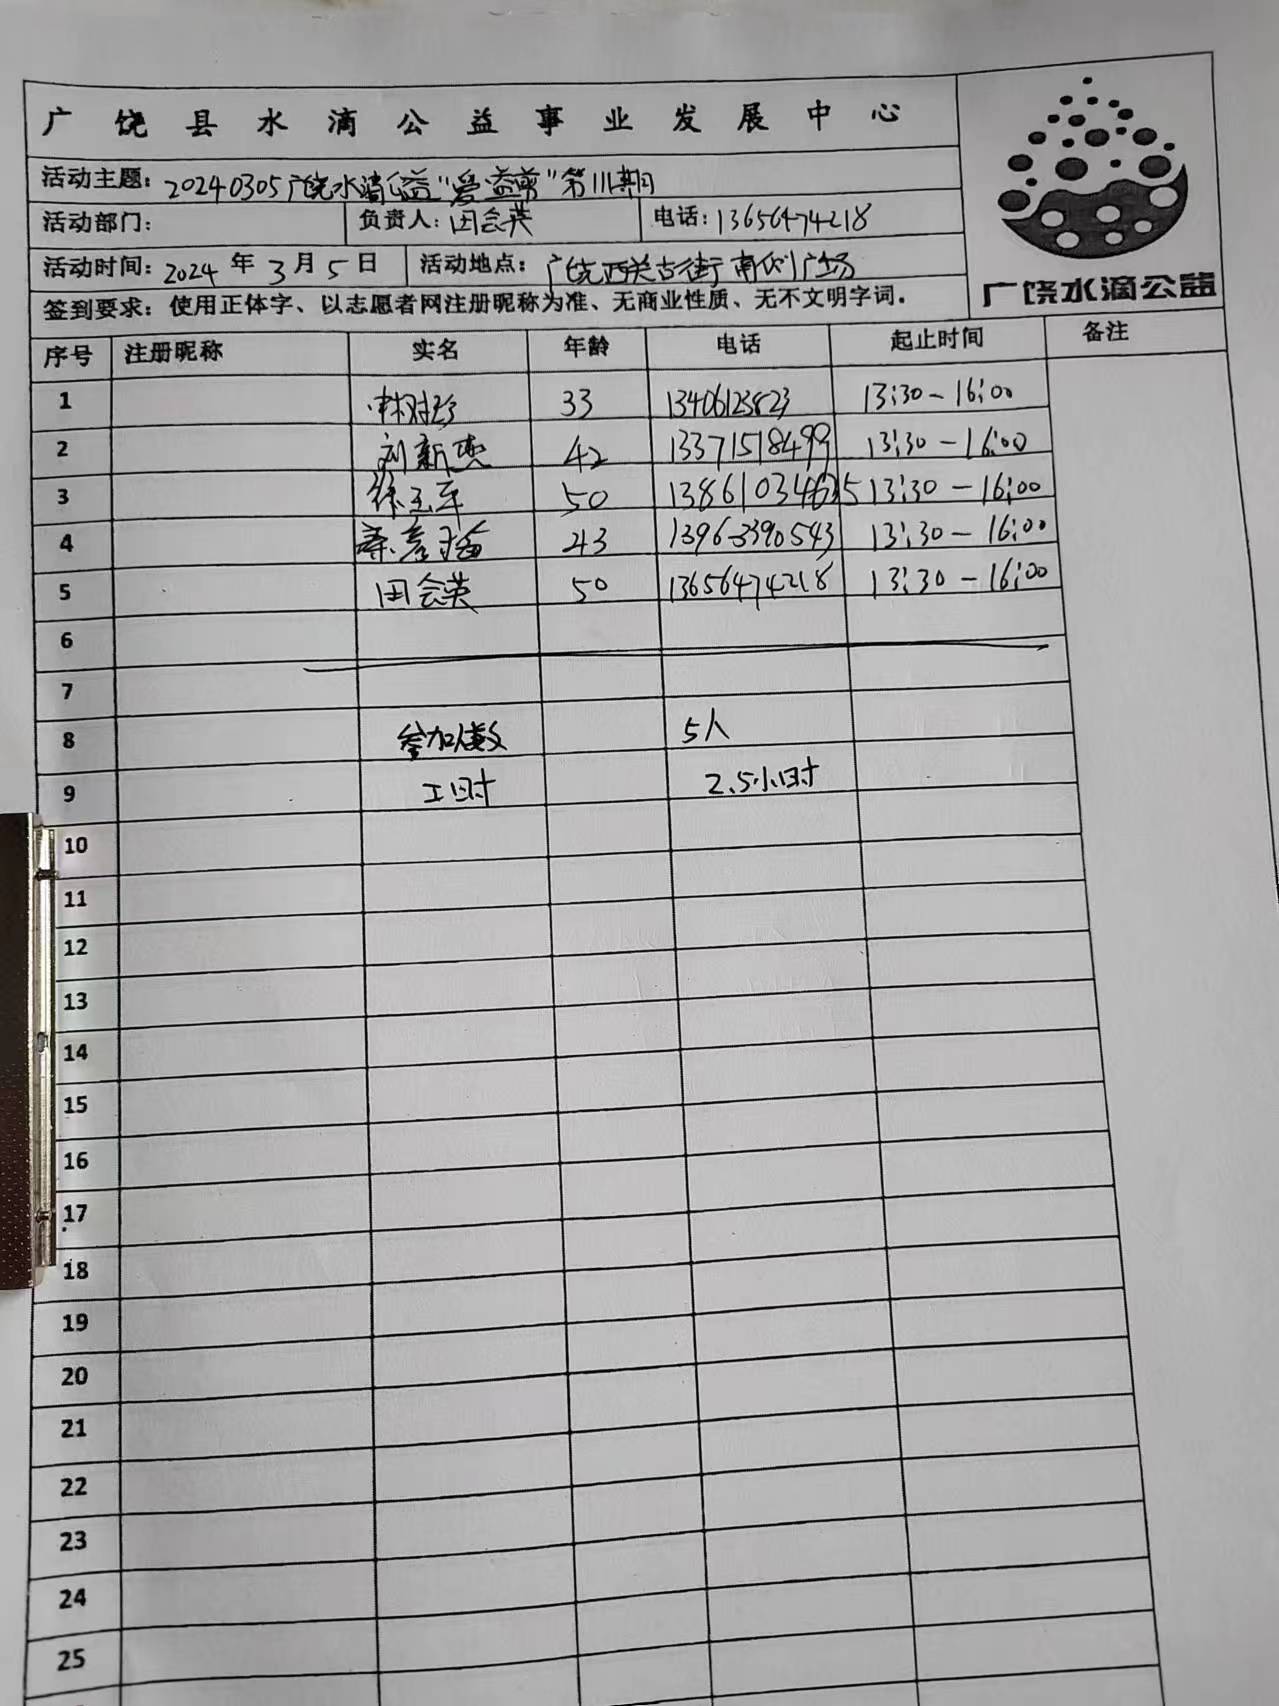 广饶县水滴公益事业发展中心
活动主题：20240305广饶水滴公益"爱益剪"第111期
活动部门： 负责人：田会英 电话：13656474218
活动时间：2024年3月5日 活动地点：广饶西关古街南侧广场
广饶水滴公益
签到要求：使用正体字、以志愿者网注册昵称为准、无商业性质、无不文明字词。
序号 注册昵称 实名 年龄 电话 起止时间 备注
1 33 13406123823 13:30-16:00
2 刘新 42 13371518499 13:30-16:00
3 徐玉军 50 13861034625 13:30-16:00
4 43 13963390543 13:30-16:00
5 田会英 50 13656474218 13:30-16:00
6
7
8 参加人数 5人
9 工时 2.5小时
10
11
12
13
14
15
16
17
18
19
20
21
22
23
24
25